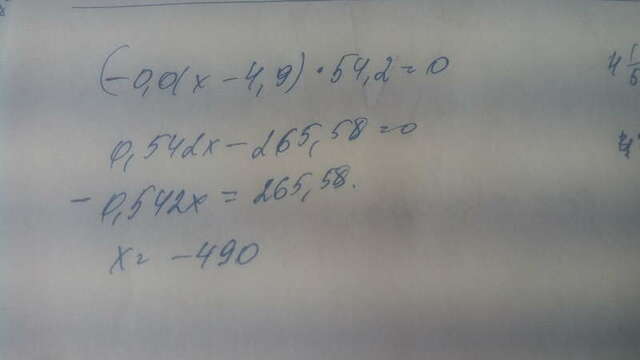 (-0,01x-4,9)·54,2=0
0,542x-265,58=0
-0,542x=265,58.
x=-490
4 1/6